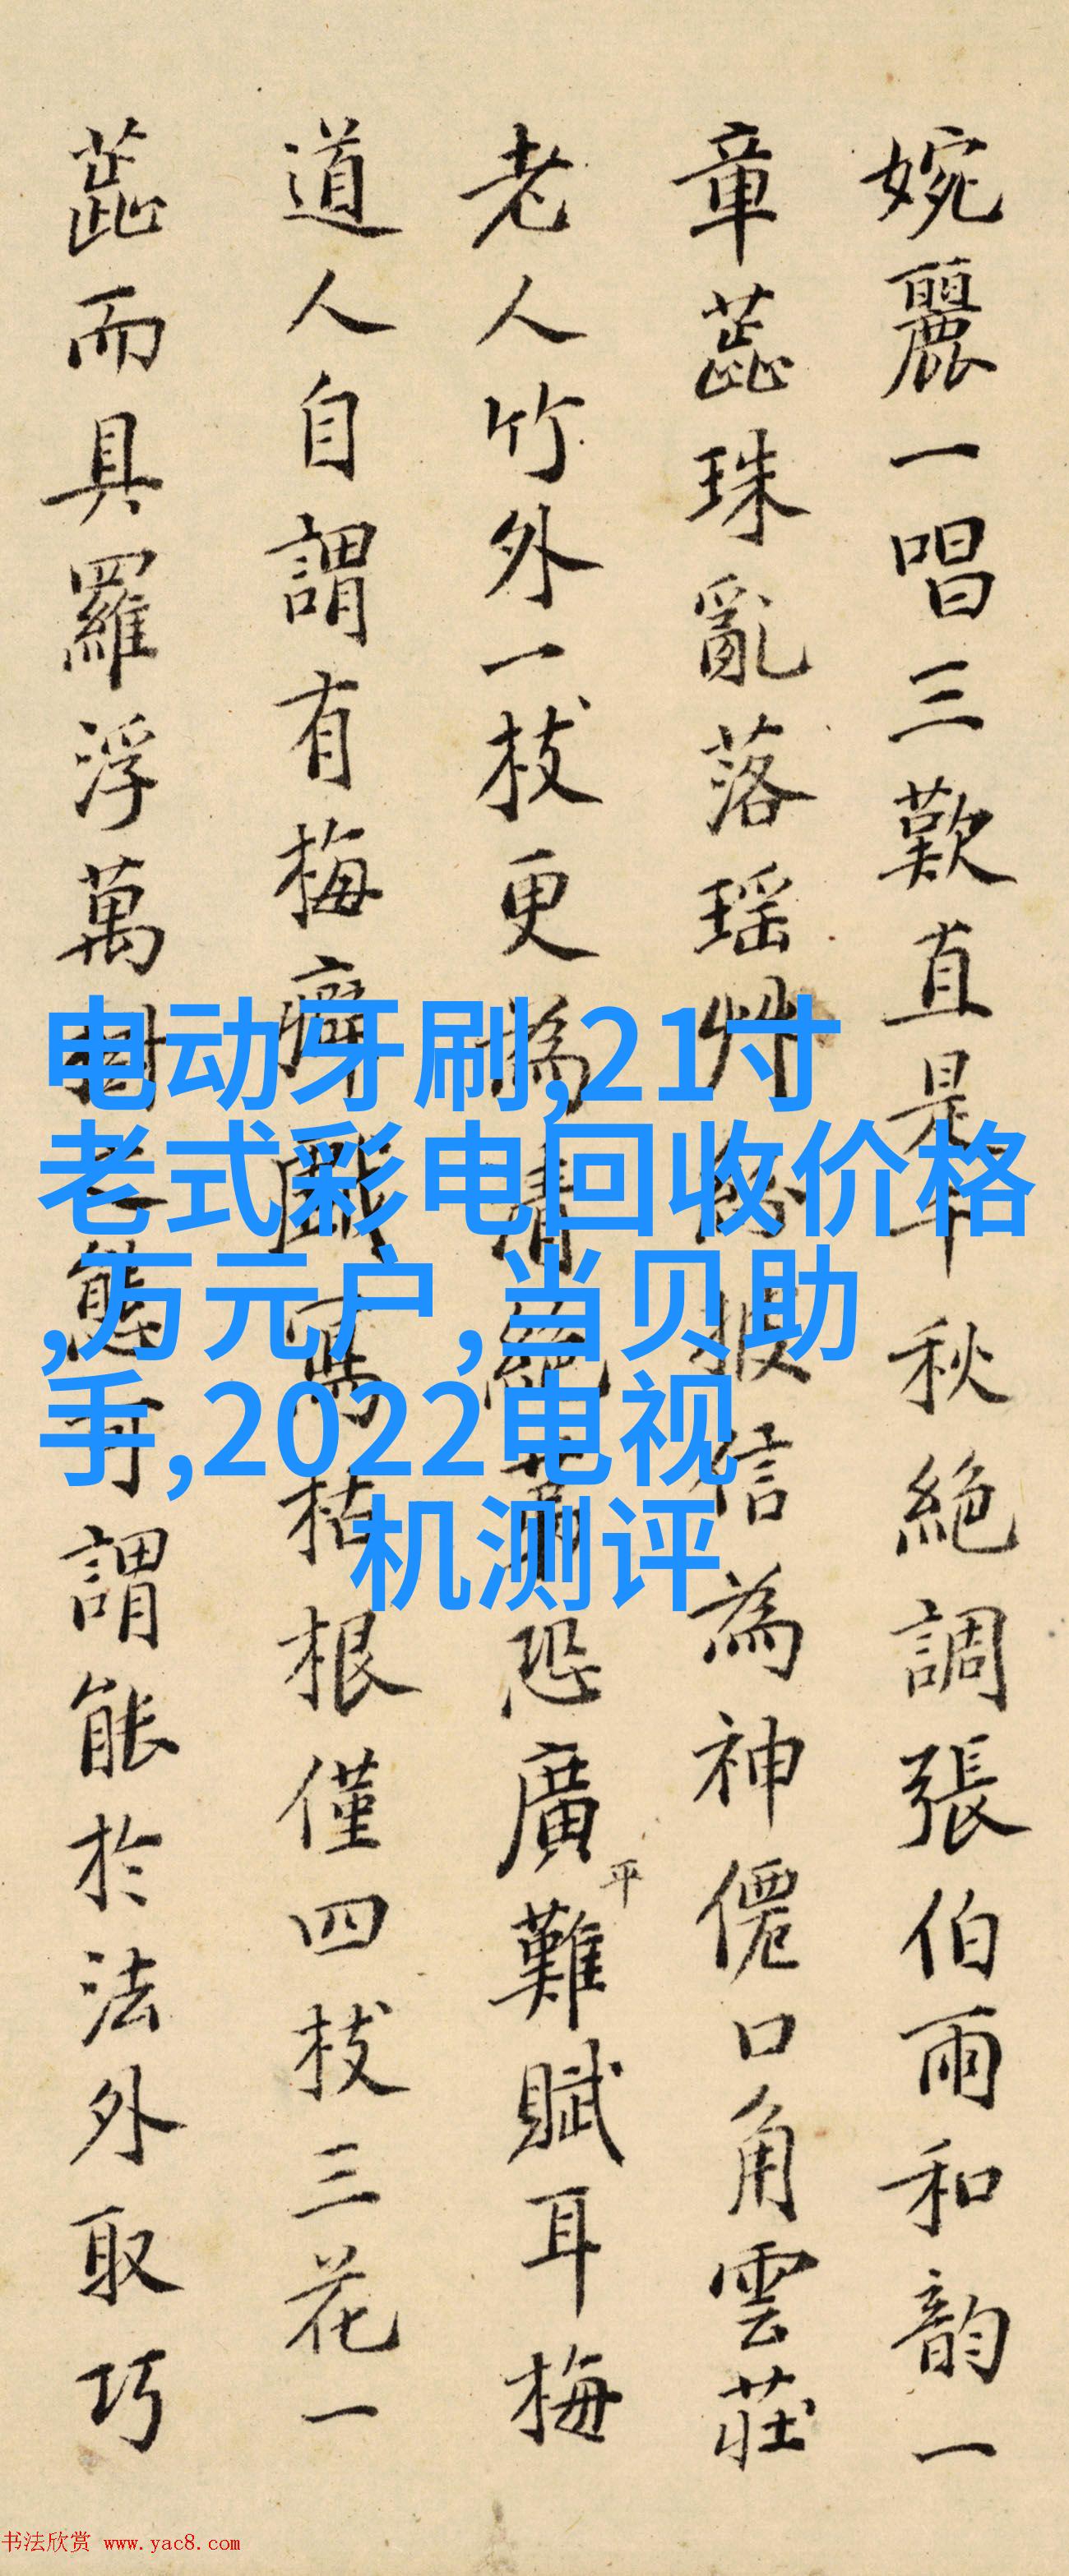 婉麗一唱三歎直是千秋絕調張伯雨和韵一
章蕋珠亂落瑶艸披信為神僊口角雲莊
老人竹外一枝更為清絕恐廣平難賦耳梅
道人自謂有梅癖戲寫枯根僅四枝三花一
蕋而具羅浮萬態可謂能於法外取巧
电动牙刷,21寸
老式彩电回收价格
,万元户,当贝助
手,2022电视
机测评
书法欣赏 www.yac8.com